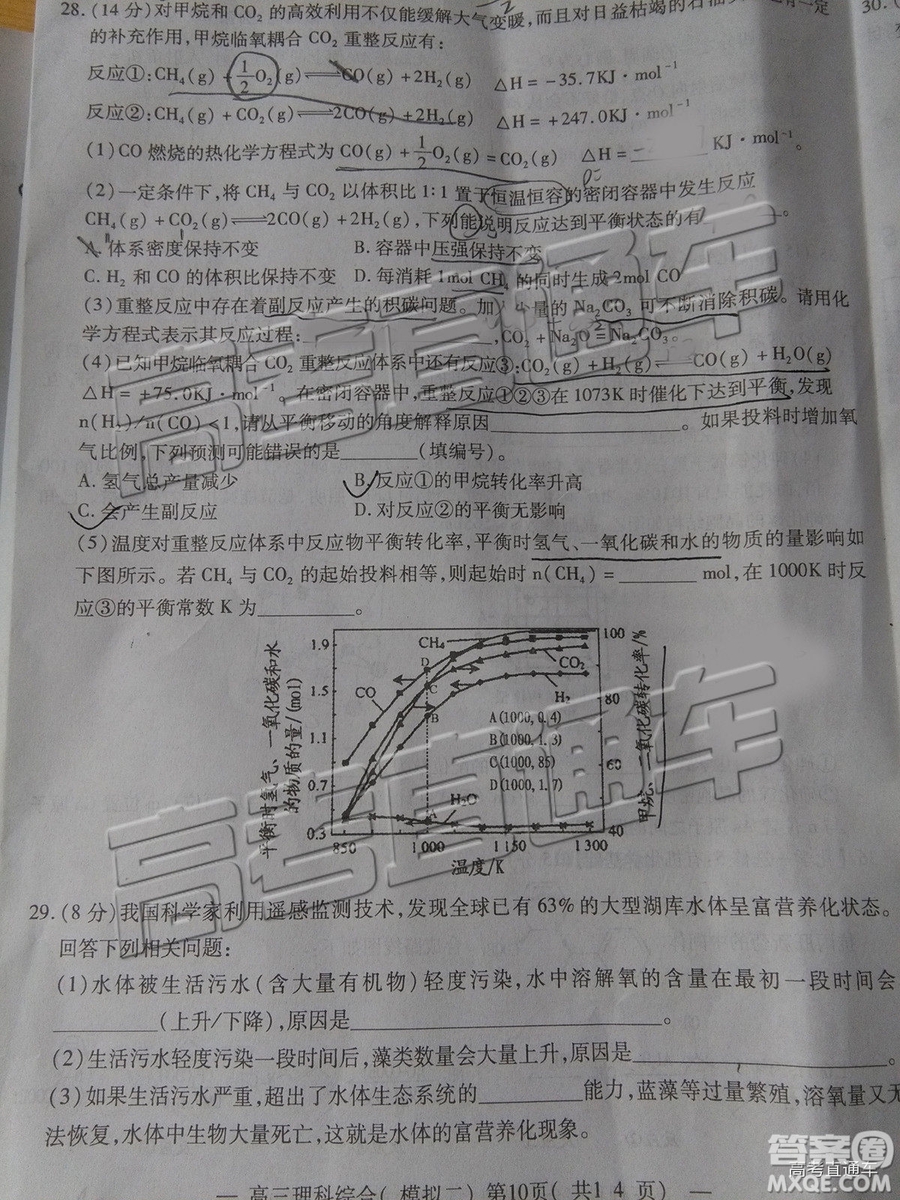 28. (14 分) 对甲烷和 CO₂ 的高效利用不仅能缓解大气变暖,而且对日益枯竭的石油 有一定
30. (
的补充作用,甲烷临氧耦合 CO₂ 重整反应有:
反应①:CH₄(g) + 1/2 O₂(g)⇌CO(g) + 2H₂(g) △H = −35.7KJ · mol⁻¹
反应②:CH₄(g) + CO₂(g)⇌2CO(g) + 2H₂(g) △H = +247.0KJ · mol⁻¹
(1) CO 燃烧的热化学方程式为 CO(g) + 1/2 O₂(g) = CO₂(g) △H = ____ KJ · mol⁻¹
(2) 一定条件下,将 CH₄ 与 CO₂ 以体积比 1:1 置于恒温恒容的密闭容器中发生反应
CH₄(g) + CO₂(g)⇌2CO(g) + 2H₂(g),下列能说明反应达到平衡状态的有____。
A. 体系密度保持不变 B. 容器中压强保持不变
C. H₂ 和 CO 的体积比保持不变 D. 每消耗 1mol CH₄ 的同时生成 2mol CO
(3) 重整反应中存在着副反应产生的积碳问题。加入少量的 Na₂CO₃ 可不断消除积碳。请用化
学方程式表示其反应过程:________,CO₂ + Na₂O = Na₂CO₃。
(4) 已知甲烷临氧耦合 CO₂ 重整反应体系中还有反应③:CO₂(g) + H₂(g)⇌CO(g) + H₂O(g)
△H = +75.0KJ · mol⁻¹。在密闭容器中,重整反应①②③在 1073K 时催化下达到平衡,发现
n(H₂)/n(CO) <1,请从平衡移动的角度解释原因________。如果投料时增加氧
气比例,下列预测可能错误的是____(填编号)。
A. 氢气总产量减少 B. 反应①的甲烷转化率升高
C. 会产生副反应 D. 对反应②的平衡无影响
(5) 温度对重整反应体系中反应物平衡转化率,平衡时氢气、一氧化碳和水的物质的量影响如
下图所示。若 CH₄ 与 CO₂ 的起始投料相等,则起始时 n(CH₄) = ____ mol,在 1000K 时反
应③的平衡常数 K 为____。
平衡时氢气、一氧化碳和水的物质的量/(mol)
1.9
1.5
1.1
0.7
0.3
CH₄
CO
CO₂
H₂
H₂O
D
C
B
A(1000,0.4)
B(1000,1.3)
C(1000,85)
D(1000,1.7)
100
80
60
40
甲烷、二氧化碳转化率/%
850 1000 1150 1300
温度/K
29. (8 分) 我国科学家利用遥感监测技术,发现全球已有 63% 的大型湖库水体呈富营养化状态。
回答下列相关问题:
(1) 水体被生活污水(含大量有机物)轻度污染,水中溶解氧的含量在最初一段时间会
____(上升/下降),原因是________。
(2) 生活污水轻度污染一段时间后,藻类数量会大量上升,原因是________。
(3) 如果生活污水严重,超出了水体生态系统的____能力,蓝藻等过量繁殖,溶氧量又无
法恢复,水体中生物大量死亡,这就是水体的富营养化现象。
— 高三理科综合( 模拟二) 第10页( 共1 4 页) —
高考直通车
高考直通车
答案圈
高考直通车
MXQE.COM